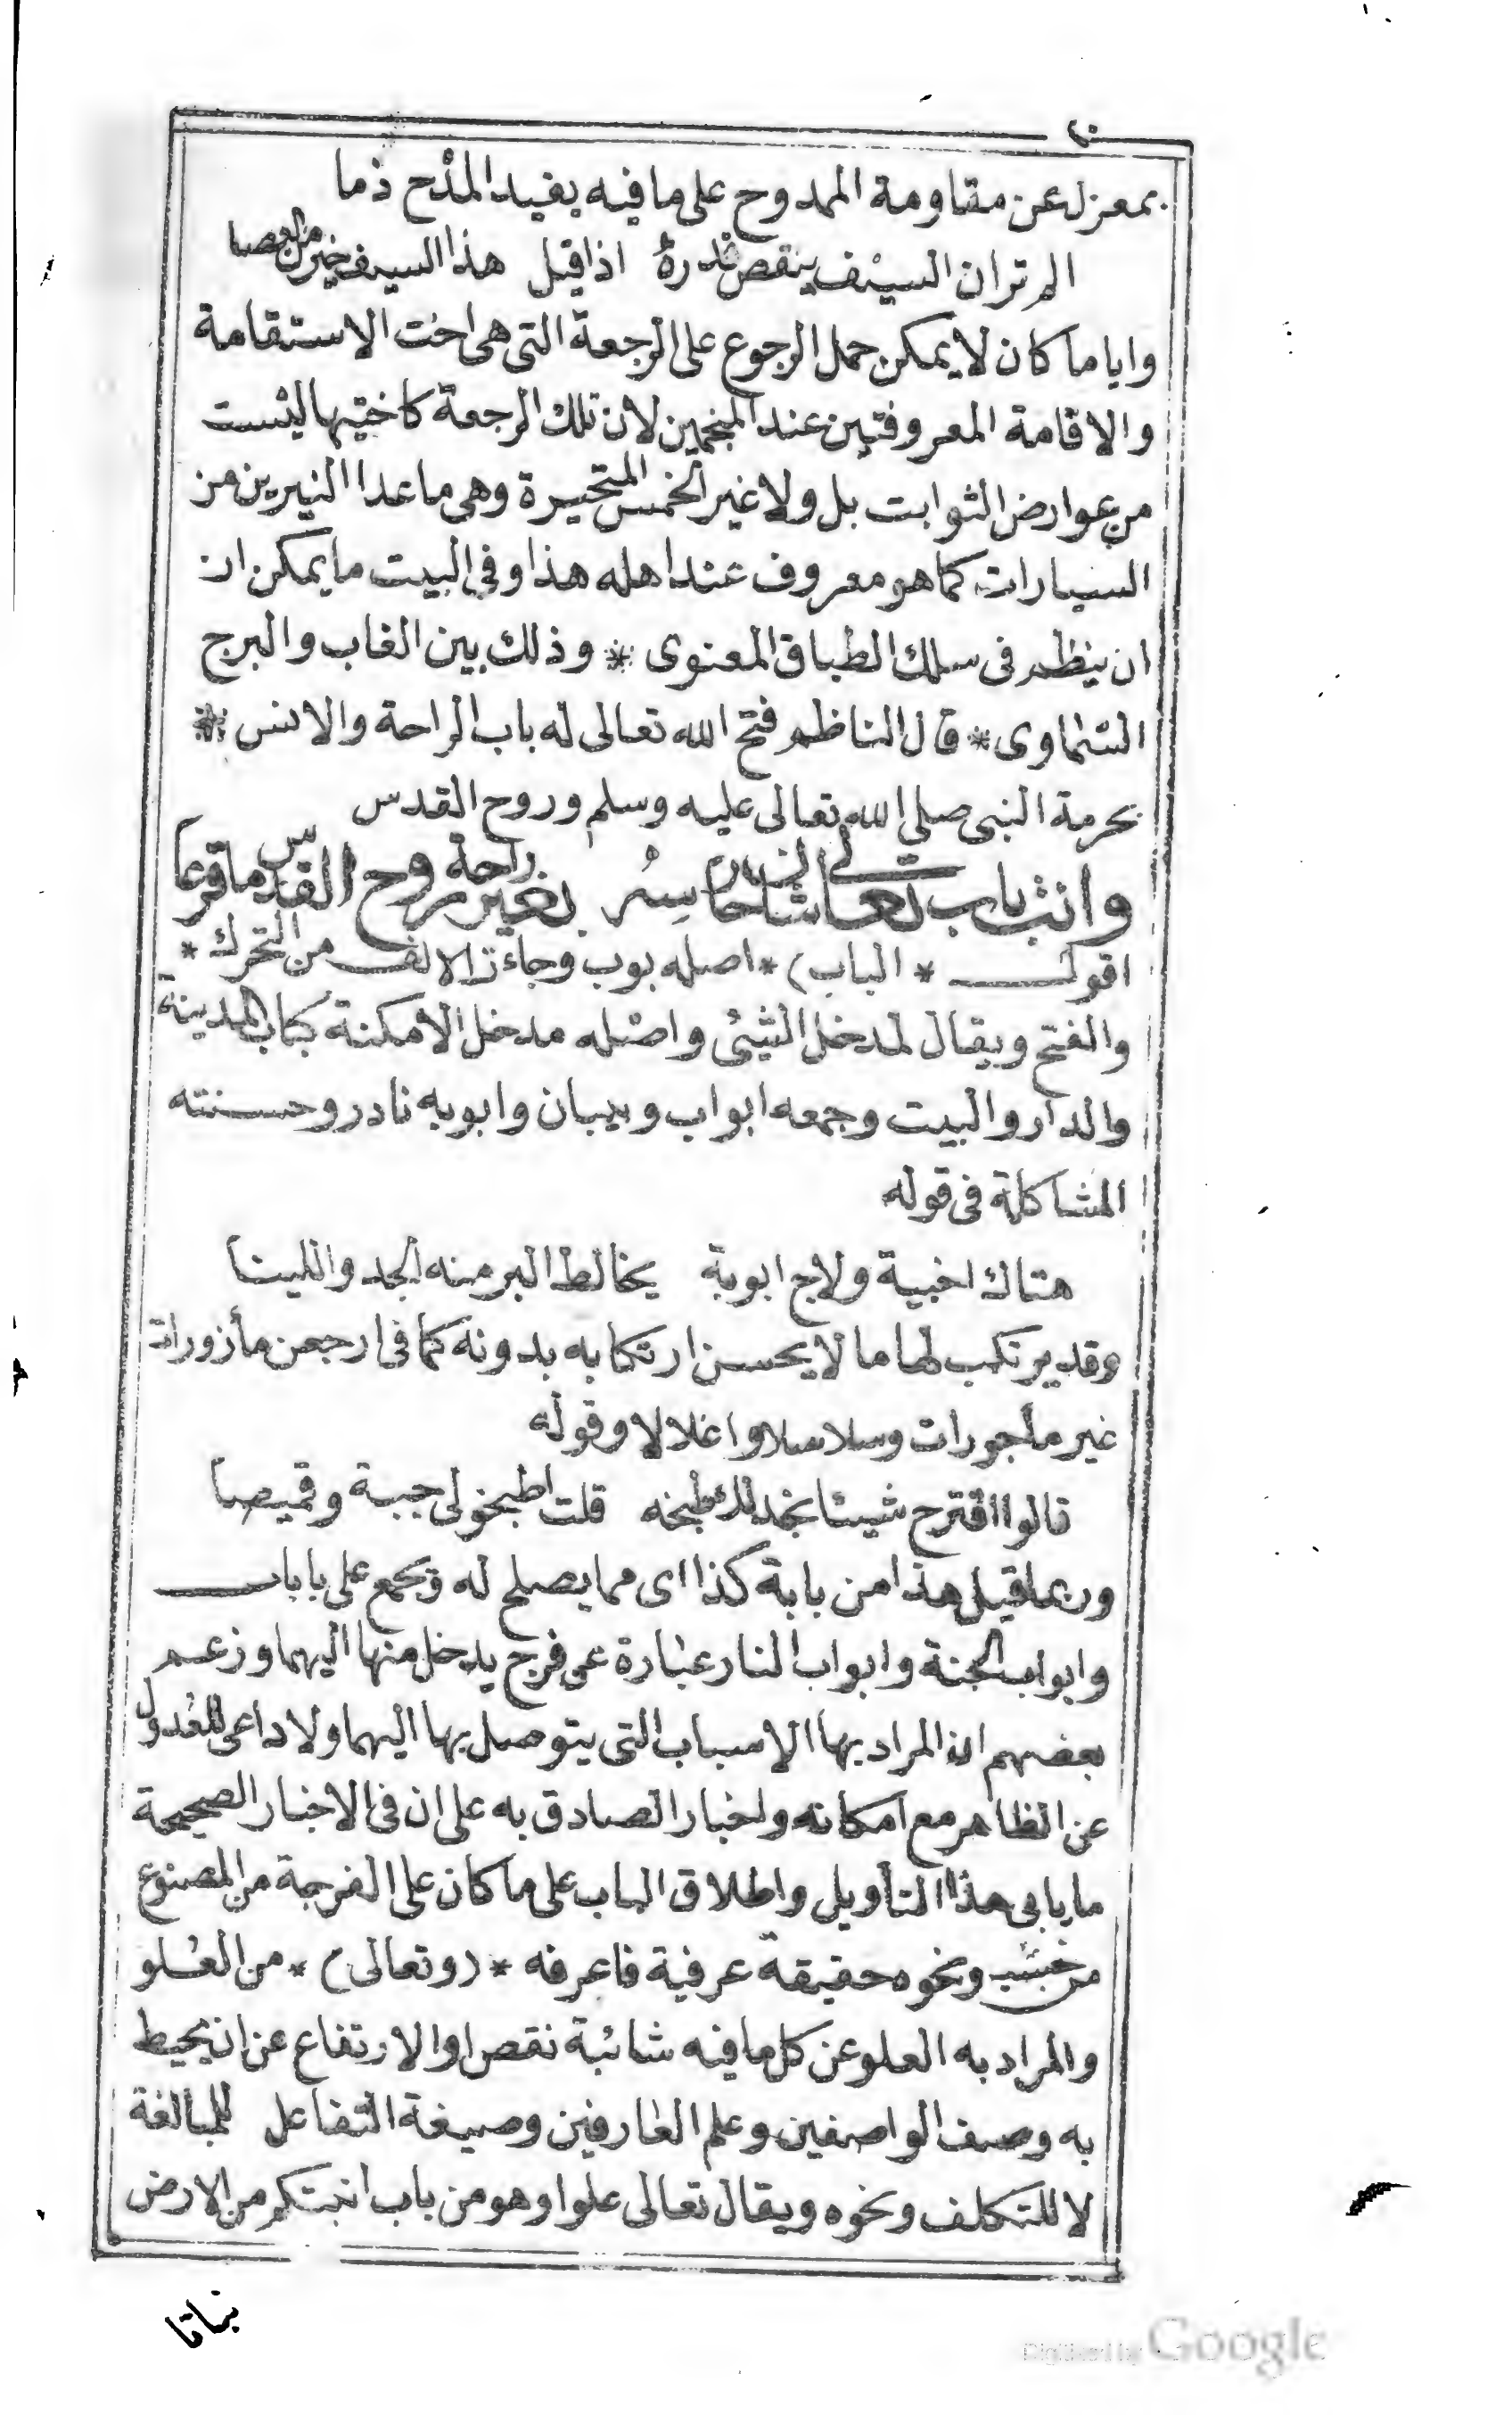 بمعزل عن مقاومة الممدوح على ما فيه يفيد المدح ذما
الم تر ان السيف ينقص قدره اذا قيل هذا السيف خير من العصا
وايا ما كان لا يمكن حمل الرجوع على الرجعة التى هى اخت الاستقامة
والاقامة المعروفتين عند المنجمين لان تلك الرجعة كاختيها ليست
من عوارض الثوابت بل ولا غير الخمس المتحيرة وهى ما عدا النيرين من
السيارات كما هو معروف عند اهله هذا وفى البيت ما يمكن ان
ان ينظم فى سلك الطباق المعنوى * وذلك بين الغاب والبرج
السماوى * قال الناظم فتح الله تعالى له باب الراحة والانس *
بحرمة النبى صلى الله تعالى عليه وسلم وروح القدس
وانت باب تعالى شان حارسه بغير راحة روح القدس ما قرعا
اقول * الباب) * اصله بوب وجاءت الالف من التحرك *
والفتح ويقال لمدخل الشيئ واصله مدخل الامكنة كباب المدينة
والدار والبيت وجمعه ابواب وبيبان وابوبه نادر وحسنته
المشاكلة فى قوله
هتاك اخبية ولاج ابوبة يخالط البر منه الجد واللينا
وقد يرتكب لها ما لا يحسن ارتكابه بدونه كما فى ارجعن مأزورات
غير مأجورات وسلاسلا واغلالا وقوله
قالوا اقترح شيئا نجد لك طبخه قلت اطبخو لى جبة وقميصا
وربما قيل هذا من بابة كذا اى مما يصلح له وتجمع على بابات
وابواب الجنة وابواب النار عبارة عن فرج يدخل منها اليهما وزعم
بعضهم ان المراد بها الاسباب التى يتوصل بها اليهما ولا داعى للعدول
عن الظاهر مع امكانه واخبار الصادق به على ان فى الاخبار الصحيحة
ما يابى هذا التأويل واطلاق الباب على ما كان على الفرجة من المصنوع
من خشب ونحوه حقيقة عرفية فاعرفه * (وتعالى) * من العلو
والمراد به العلو عن كل ما فيه شائبة نقص او الارتفاع عن ان يحيط
به وصف الواصفين وعلم العارفين وصيغة التفاعل للمبالغة
لا للتكلف ونحوه ويقال تعالى علوا وهو من باب انبتكم من الارض
نباتا
Digitized by Google